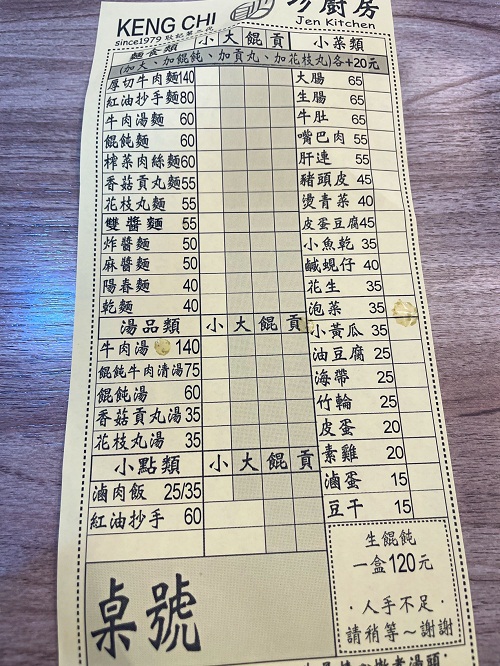 KENG CHI
廚房
since1979
Jen Kitchen
麵食類 小 大 餛 貢 小菜類
(加大、加餛飩、加貢丸、加花枝丸)各+20元
厚切牛肉麵140 大腸 65
紅油抄手麵80 生腸 65
牛肉湯麵 60 牛肚 65
餛飩麵 60 嘴巴肉 55
榨菜肉絲麵60 肝連 55
香菇貢丸麵55 豬頭皮 45
花枝丸麵 55 燙青菜 40
雙醬麵 55 皮蛋豆腐45
炸醬麵 50 小魚乾 35
麻醬麵 50 鹹蜆仔 40
陽春麵 40 花生 35
乾麵 40 泡菜 35
湯品類 小 大 餛 貢 小黃瓜 35
牛肉湯 140 油豆腐 25
餛飩牛肉清湯75 海帶 25
餛飩湯 60 竹輪 25
香菇貢丸湯35 皮蛋 20
花枝丸湯 35 素雞 20
小點類 小 大 餛 貢
滷肉飯 25/35 滷蛋 15
紅油抄手 60 豆干 15
生餛飩
一盒120元
·人手不足·
請稍等～謝謝
桌號